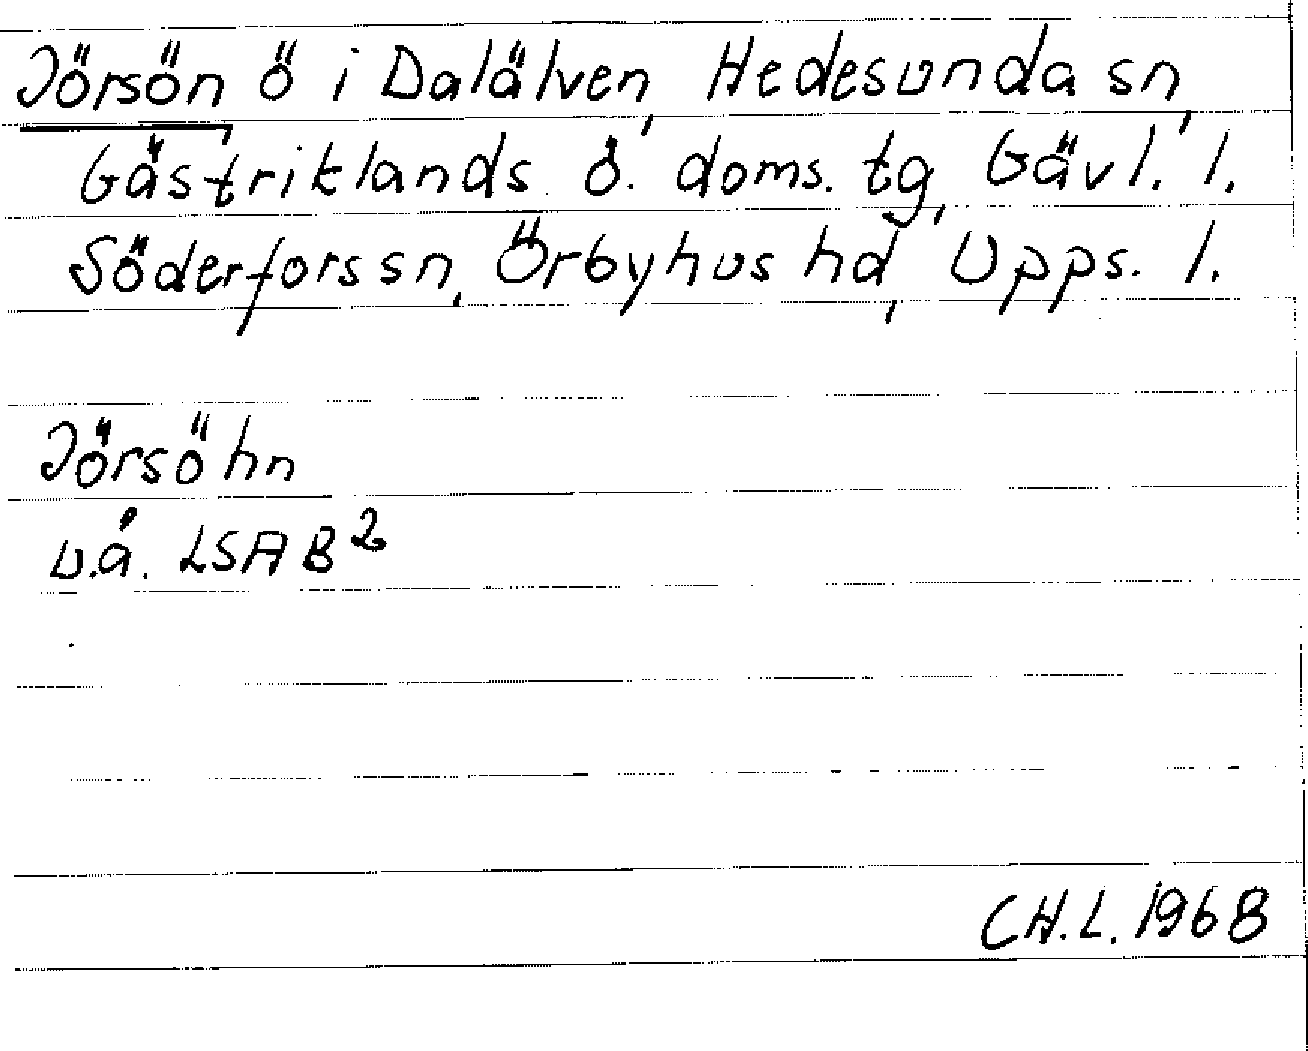 Jörsön ö i Dalälven, Hedesunda sn,
Gästriklands ö. doms. tg, Gävl. l.
Söderfors sn, Örbyhus hd, Upps. l.
Jörsöhn
u.å. LSA B²
CH.L. 1968